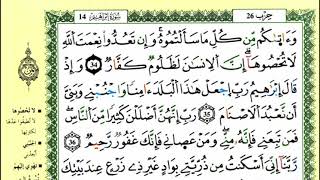 حزب 26
سورة إبراهيم 14
وَءَاتَىٰكُم مِّن كُلِّ مَا سَأَلْتُمُوهُ وَإِن تَعُدُّوا۟ نِعْمَتَ ٱللَّهِ
لَا تُحْصُوهَآ إِنَّ ٱلْإِنسَٰنَ لَظَلُومٌ كَفَّارٌ 34 وَإِذْ
قَالَ إِبْرَٰهِيمُ رَبِّ ٱجْعَلْ هَٰذَا ٱلْبَلَدَ ءَامِنًا وَٱجْنُبْنِى وَبَنِىَّ
أَن نَّعْبُدَ ٱلْأَصْنَامَ 35 رَبِّ إِنَّهُنَّ أَضْلَلْنَ كَثِيرًا مِّنَ ٱلنَّاسِ
فَمَن تَبِعَنِى فَإِنَّهُۥ مِنِّى وَمَنْ عَصَانِى فَإِنَّكَ غَفُورٌ رَّحِيمٌ 36
رَّبَّنَآ إِنِّىٓ أَسْكَنتُ مِن ذُرِّيَّتِى بِوَادٍ غَيْرِ ذِى زَرْعٍ عِندَ بَيْتِكَ
لا تحصوها